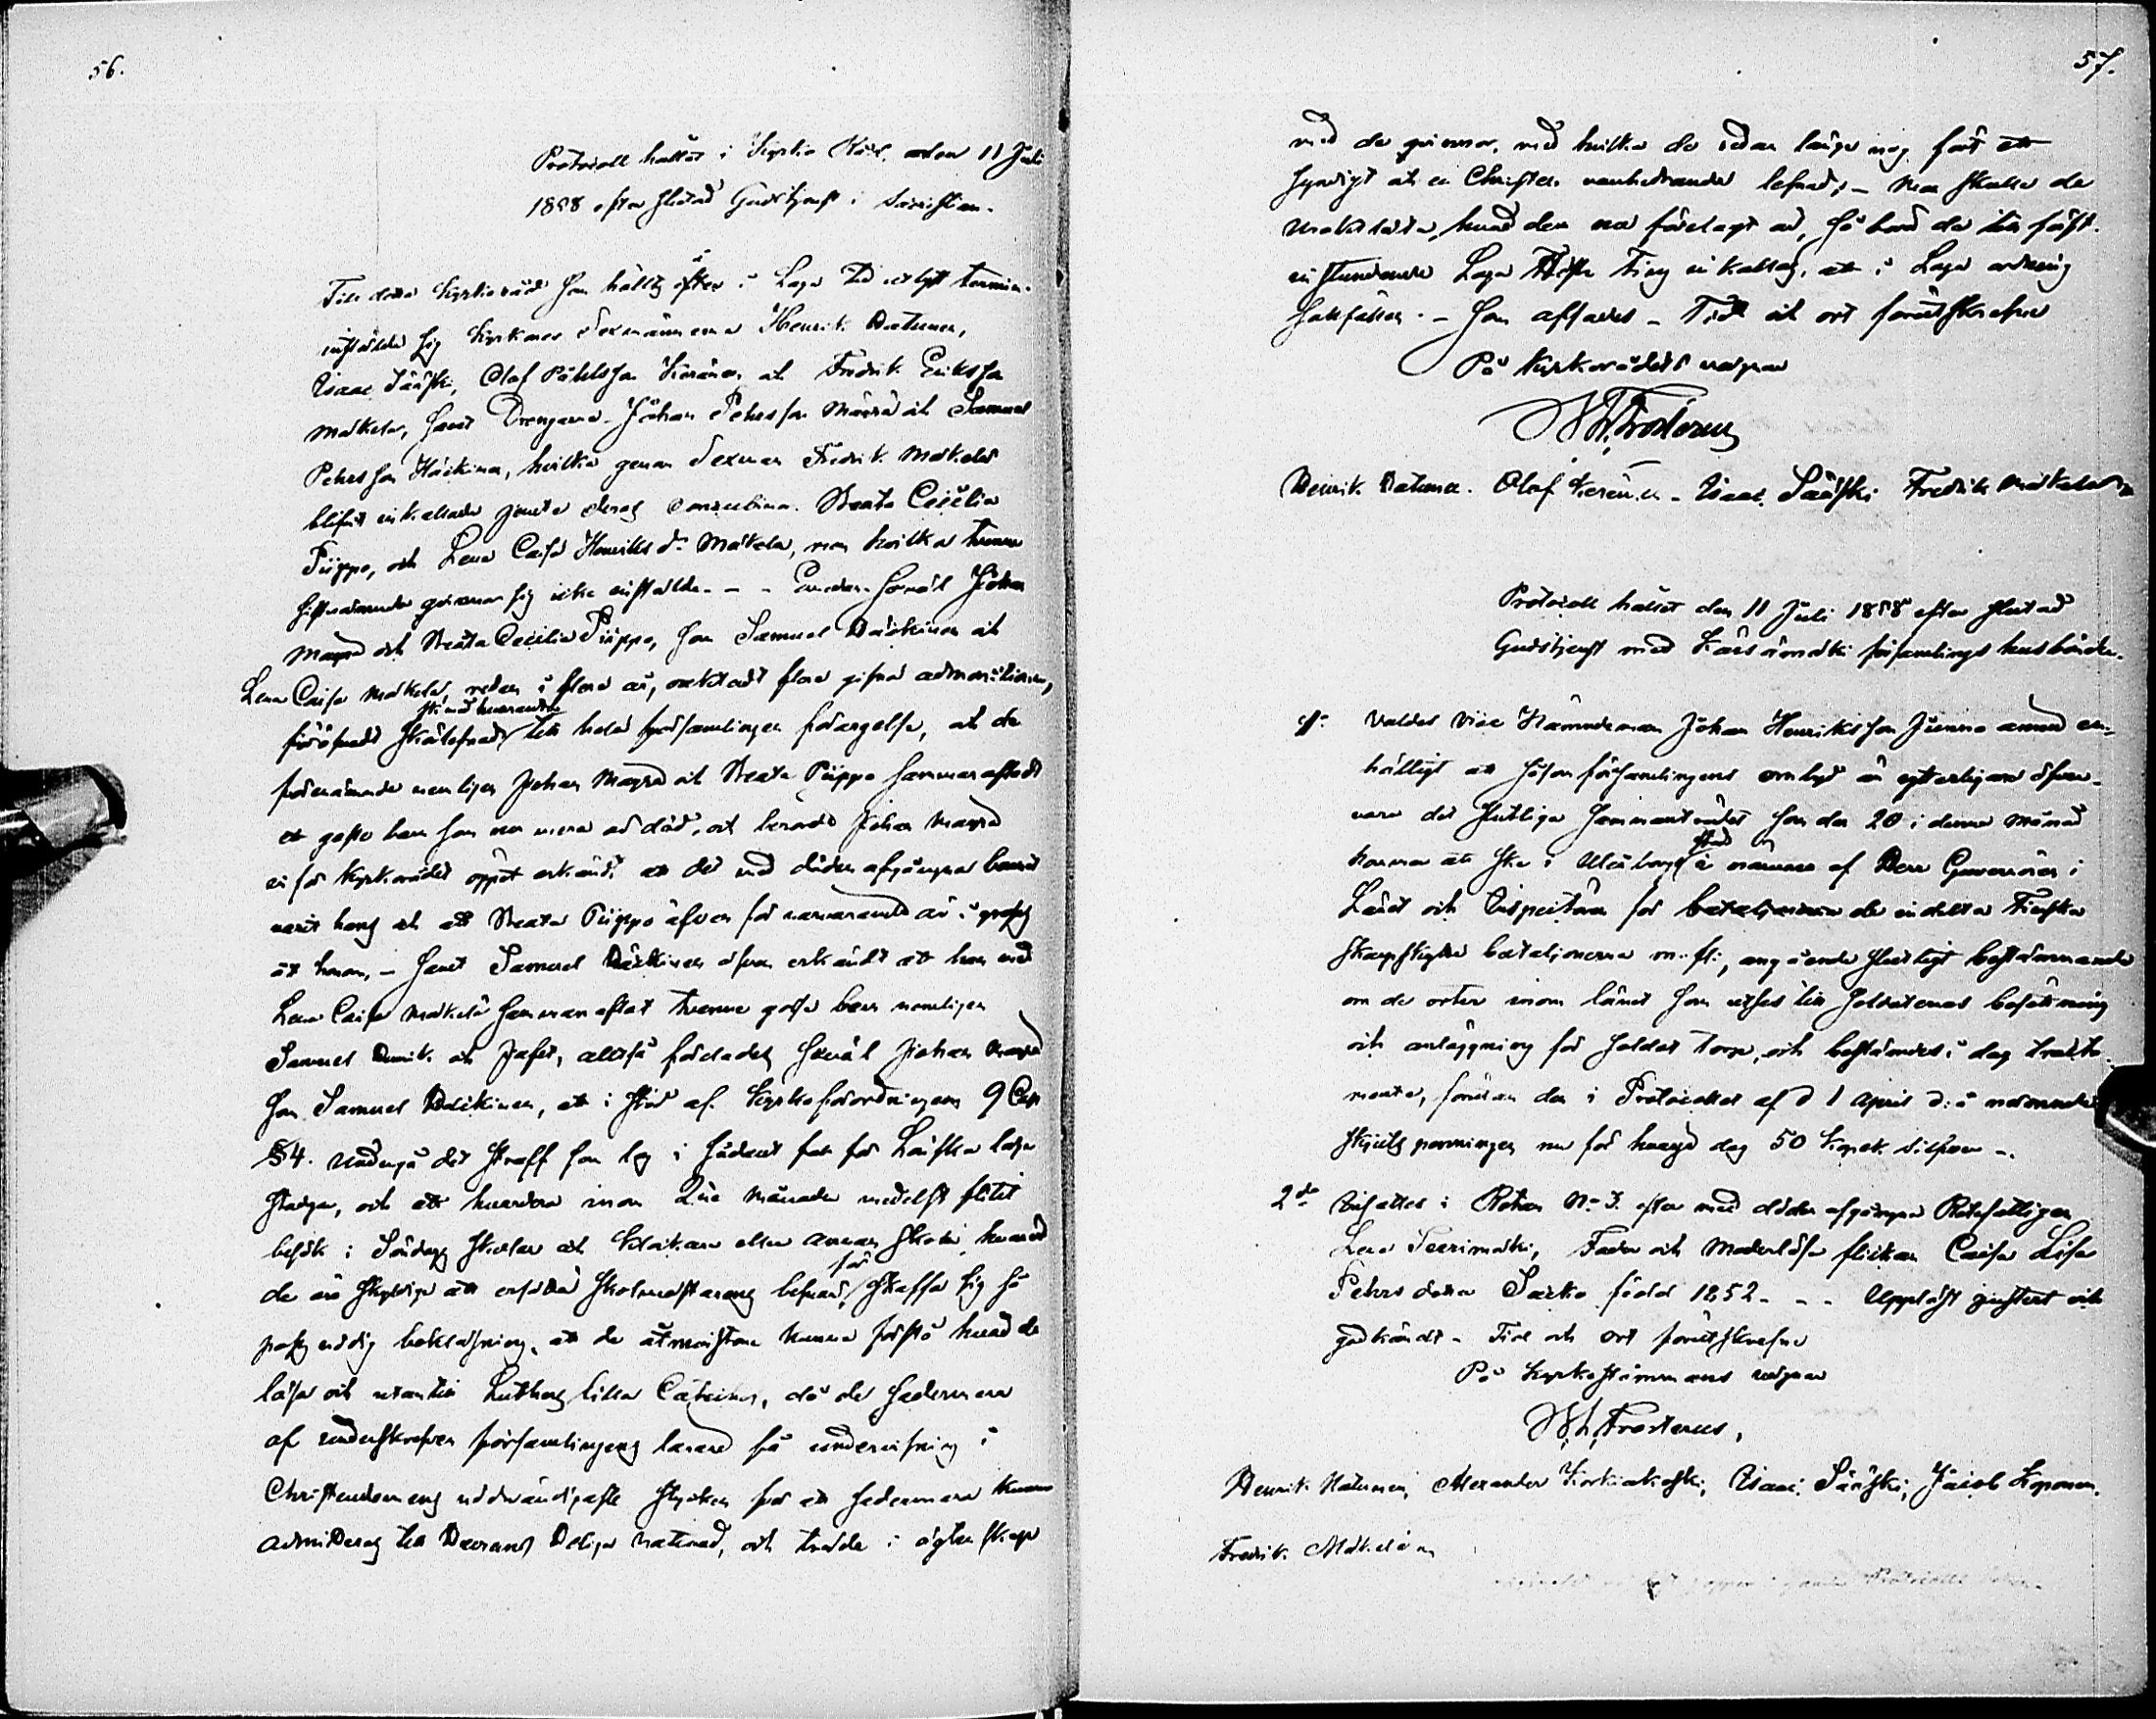 56.
Protocoll hållet i Kyrko Råd den 11 Juli
1858 efter slutad Gudstjenst i Sacristian.
Till detta Kyrkoråd som hålles efter i Laga tid utlyst termin
instälde sig Kyrkones Sexmännerna Henrik Hatunen,
Isaac Sääski, Olof Påhlsson Keränen och Fredrik Eriksson
Mäkelä, samt Drengarne Johan Pehrsson Mäyrä och Samuel
Pehrsson Häikinen, hvilka genom Sexman Fredrik Mäkelä
blifvit inkallade jemte deras concubiner Beata Cecilia
Piippo, och Lena Caisa Henriks dr Mäkelä, men hvilka tvenne
sistnämnde qvinnor sig icke instälde. - - Emedan såväl Johan
Mäyrä och Beata Cecilia Piippo, som Samuel Häikinen och
Lena Caisa Mäkelä, redan i flera år, oaktadt flera gifna admonitioner,
föröfvadt skörlefnad sins med hvarandra till hela församlingens förargelse, och de
förenämnde nemligen Johan Mäyrä och Beata Piippo sammanafladt
ett gosse barn som nu mera är död, och berörde Johan Mäyrä
inför Kyrkorådet öppet erkändt att det med döden afgångna barnet
varit hans och att Beata Piippo äfven för närvarande är i grossess
åt honom, - samt Samuel Häikinen äfven erkändt att han med
Lena Caisa Mäkelä sammanaflat tvenne gosse barn nemligen
Samuel Henrik och Jafet, alltså förelades såväl Johan Mäyrä
som Samuel Häikinen, att i stöd af Kyrkoförordningens 9 Cap
§ 4. undergå det straff som lag i sådant fall för Lönska läger
stadgar, och att hvardera inom Tre månader medelst flitit
besök i Söndags skolan och klockare eller annan skola, hvarvid
de äro skyldige att ersätta Skolmästarens besvär, för skaffa sig så
pass nödig bokläsning, att de åtminstone kunna förstå hvad de
läsa och utantill Luthers lilla Catekes, då de sedermera
af undertecknad församlingens lärare få undervisning i
Christendomens nödvändigaste stycken för att sedermera kunna
admitteras till Herrans Heliga Nattvard, och träda i ägtenskap
57.
med de qvinnor, med hvilka de redan länge nog fört ett
syndigt och en Christen vanhedrande lefnad; - Men skulle de
uraktlåta hvad dem nu förelagt är, så bör de till först
instundande Laga Höste Ting inkallas, att i Laga ordning
sakfällas. - Som afsades - Tid och ort förutskrefne
På Kyrkorådets vägnar
Frosterus
Henrik Hatunen. Olof Keränen - Isaac Sääski Fredrik Mäkelä
Protocoll hållet den 11 Juli 1858 efter slutad
Gudstjenst med Kärsämäki församlings husbönder.
1o. Valdes Vice Nämndeman Johan Henriksson Junno med en-
hälligt att såsom församlingens ombud än ytterligare öfver-
vara det slutliga sammanträdet som den 20 i denna månad
kommer att ske i Uleåborgs stad i närvaro af Herr Guvernören i
Länet och Inspectorn för de indelta Finska
skarpskytte bataljonerna m. fl:, angående slutligt bestämmande
om de orter inom länet som utses till soldaternas bosättning
och anläggning för soldat torp, och bestämdes i dag trakta-
mente, förutan den i Protocollet af d 1 April d: å nämnde
skjutspenningen nu för hvarje dag 50 kopek Silfver -.
2do Insattes i Rotan No 3. efter med döden afgångne Rotefattigen
Lena Teerimäki, Fader och Moderlösa flickan Caisa Lisa
Pehrs doter Sarko född 1852. - - Uppläst justert och
godkändt - Tid och ort förutskrefne
På Kyrkostämmans vägnar
Frosterus,
Henrik Hatunen, Alexander Korkiakoski, Isaac Sääski, Jacob Koponen.
Fredrik Mäkelä